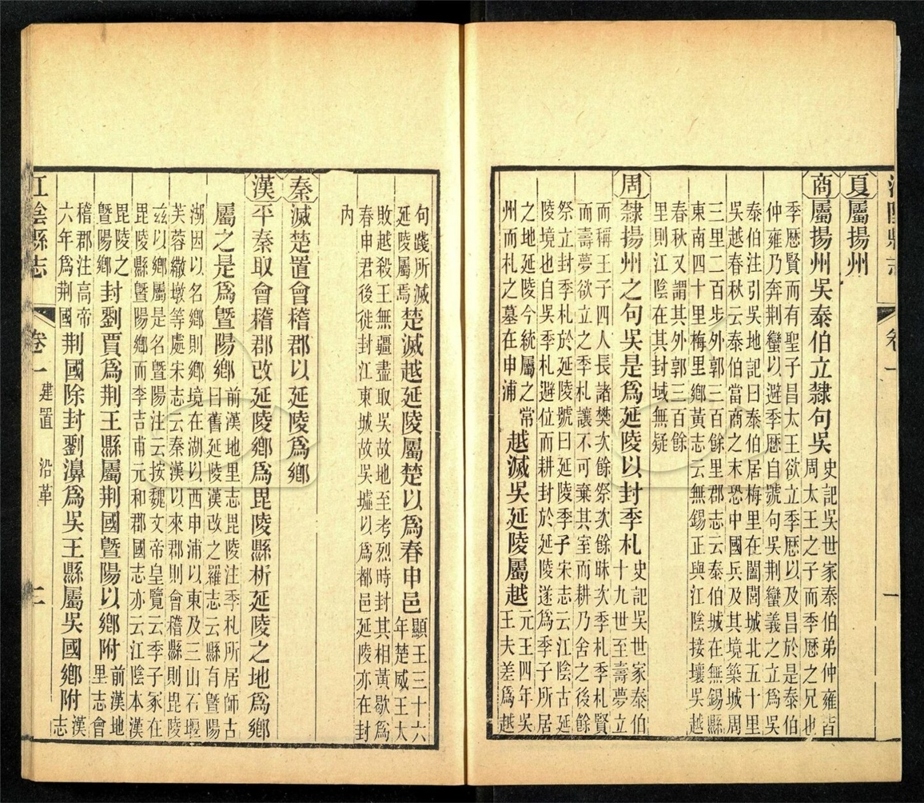 江陰縣志 卷一 一
夏屬揚州
商屬揚州吳泰伯立隸句吳
史記吳世家泰伯弟仲雍皆
周太王之子而季歷之兄也
季歷賢而有聖子昌太王欲立季歷以及昌於是泰伯
仲雍乃奔荆蠻以避季歷自號句吳荆蠻義之立爲吳
泰伯注引吳地記曰泰伯居梅里在闔閭城北五十里
吳越春秋云泰伯當商之末恐中國兵及其境築城周
三里二百步外郭三百餘里郡志云泰伯城在無錫縣
東南四十里梅里鄉黃志云無錫正與江陰接壤吳越
春秋又謂其外郭三百餘
里則江陰在其封域無疑
周隸揚州之句吳是爲延陵以封季札
史記吳世家泰伯
十九世至壽夢立
而稱王子四人長諸樊次餘祭次餘眛次季札季札賢
而壽夢欲立之季札讓不可棄其室而耕乃舍之後餘
祭立封季札於延陵號曰延陵季子宋志云江陰古延
陵境也自吳季札避位而耕封於延陵遂爲季子所居
之地延陵今統屬之常
州而札之墓在申浦
越滅吳延陵屬越
元王四年吳
王夫差爲越
句踐所滅
延陵屬焉
楚滅越延陵屬楚以爲春申邑
顯王三十六
年楚威王大
敗越殺王無疆盡取吳故地至考烈時封其相黃歇爲
春申君後徙封江東城故吳墟以爲都邑延陵亦在封
內
秦滅楚置會稽郡以延陵爲鄉
漢平秦取會稽郡改延陵鄉爲毘陵縣析延陵之地爲鄉
屬之是爲曁陽鄉
前漢地里志毘陵注季札所居師古
曰舊延陵漢改之羅志云縣有曁陽
湖因以名鄉則鄉境在湖以西申浦以東及三山石堰
芙蓉繖墩等處宋志云秦漢以來郡則會稽縣則毘陵
玆以縣屬是名曁陽注云按魏文帝皇覽云季子冢在
毘陵縣曁陽鄉而李吉甫元和郡國志亦云江陰本漢
毘陵之
曁陽鄉
封劉賈爲荆王縣屬荆國曁陽以鄉附
前漢地
里志會
稽郡注高帝
六年爲荆國
荆國除封劉濞爲吳王縣屬吳國鄉附
漢
志
江陰縣志 卷一 建置 沿革 二